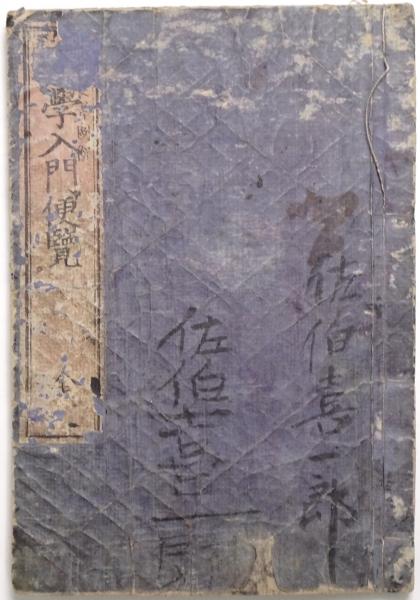 佐伯喜一郎
佐伯喜一郎
學入門便覽
全